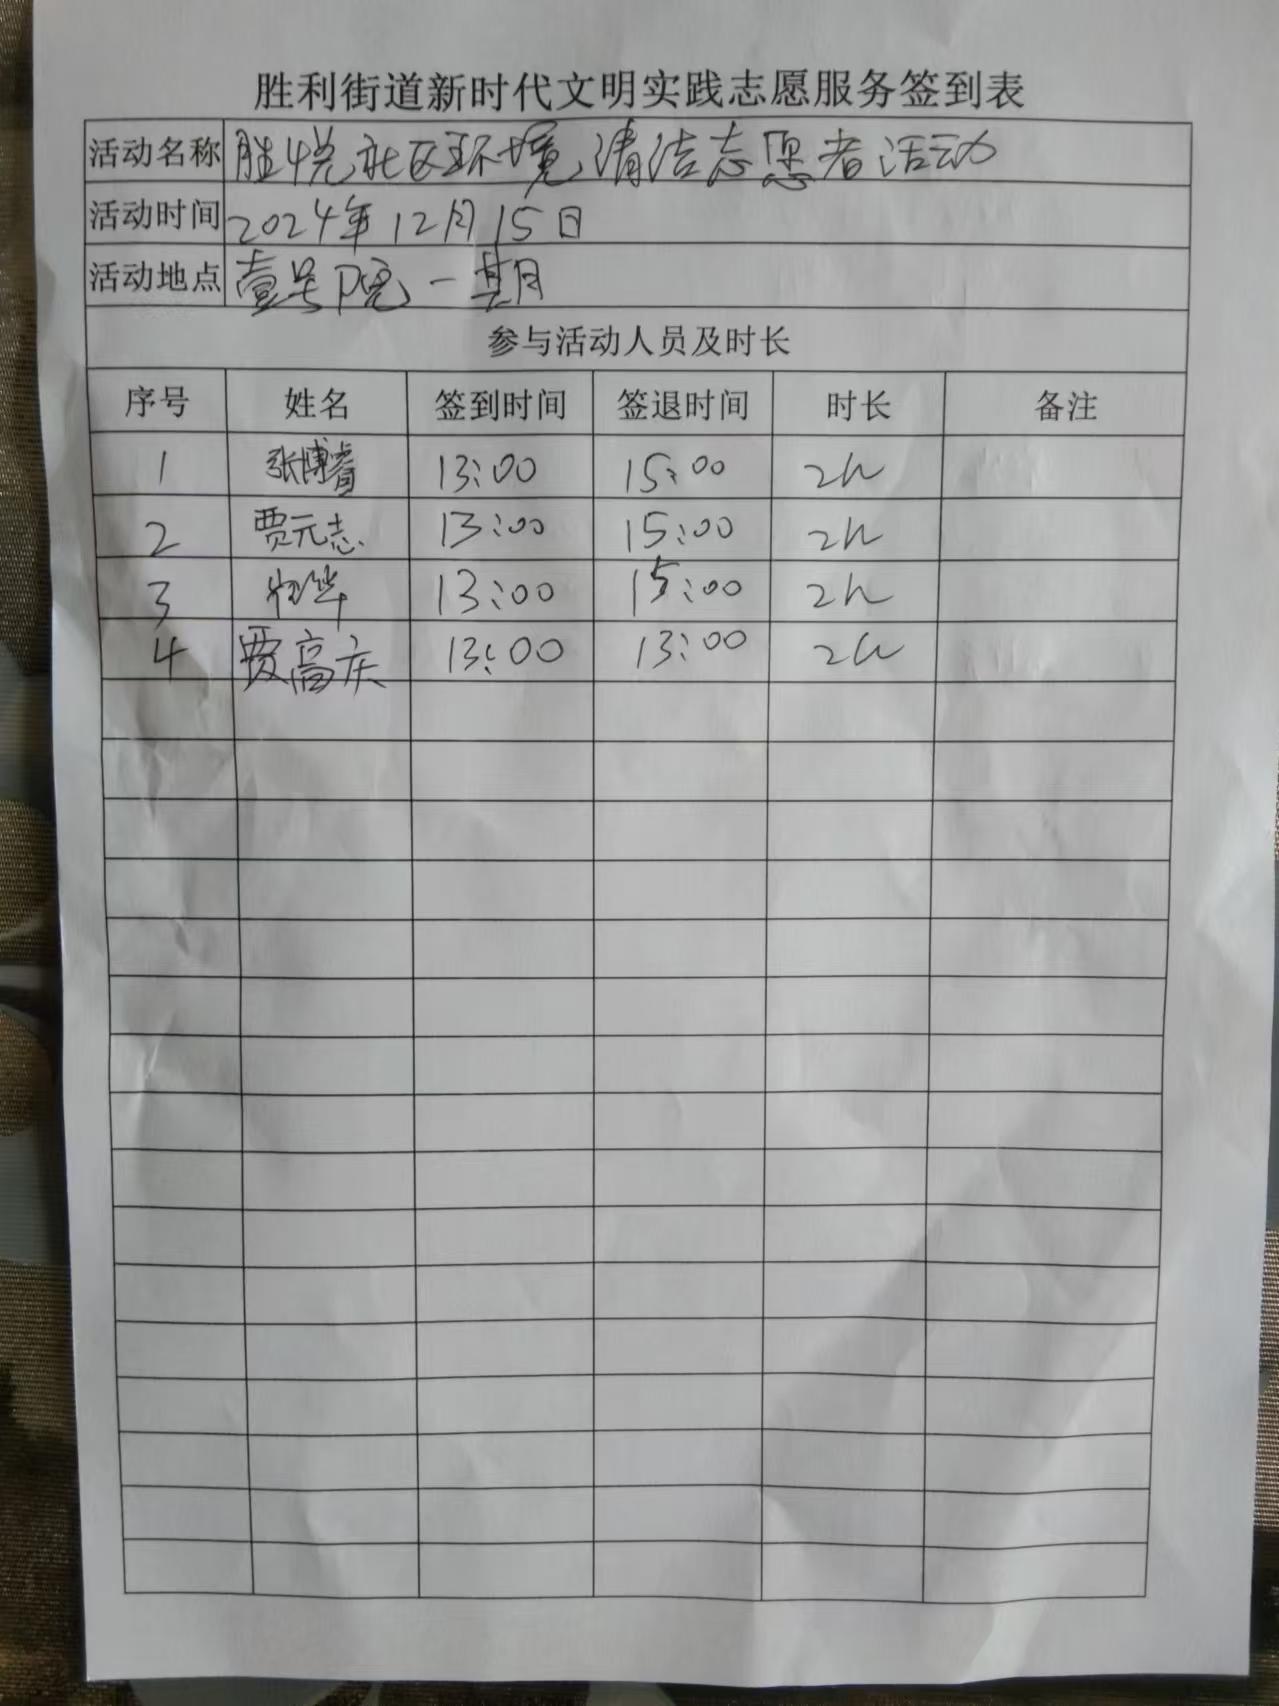 胜利街道新时代文明实践志愿服务签到表
活动名称 胜悦社区环境清洁志愿者活动
活动时间 2024年12月15日
活动地点 壹号院一期
参与活动人员及时长
序号 姓名 签到时间 签退时间 时长 备注
1 张博睿 13:00 15:00 2h
2 贾元志 13:00 15:00 2h
3 13:00 15:00 2h
4 贾高庆 13:00 13:00 2h